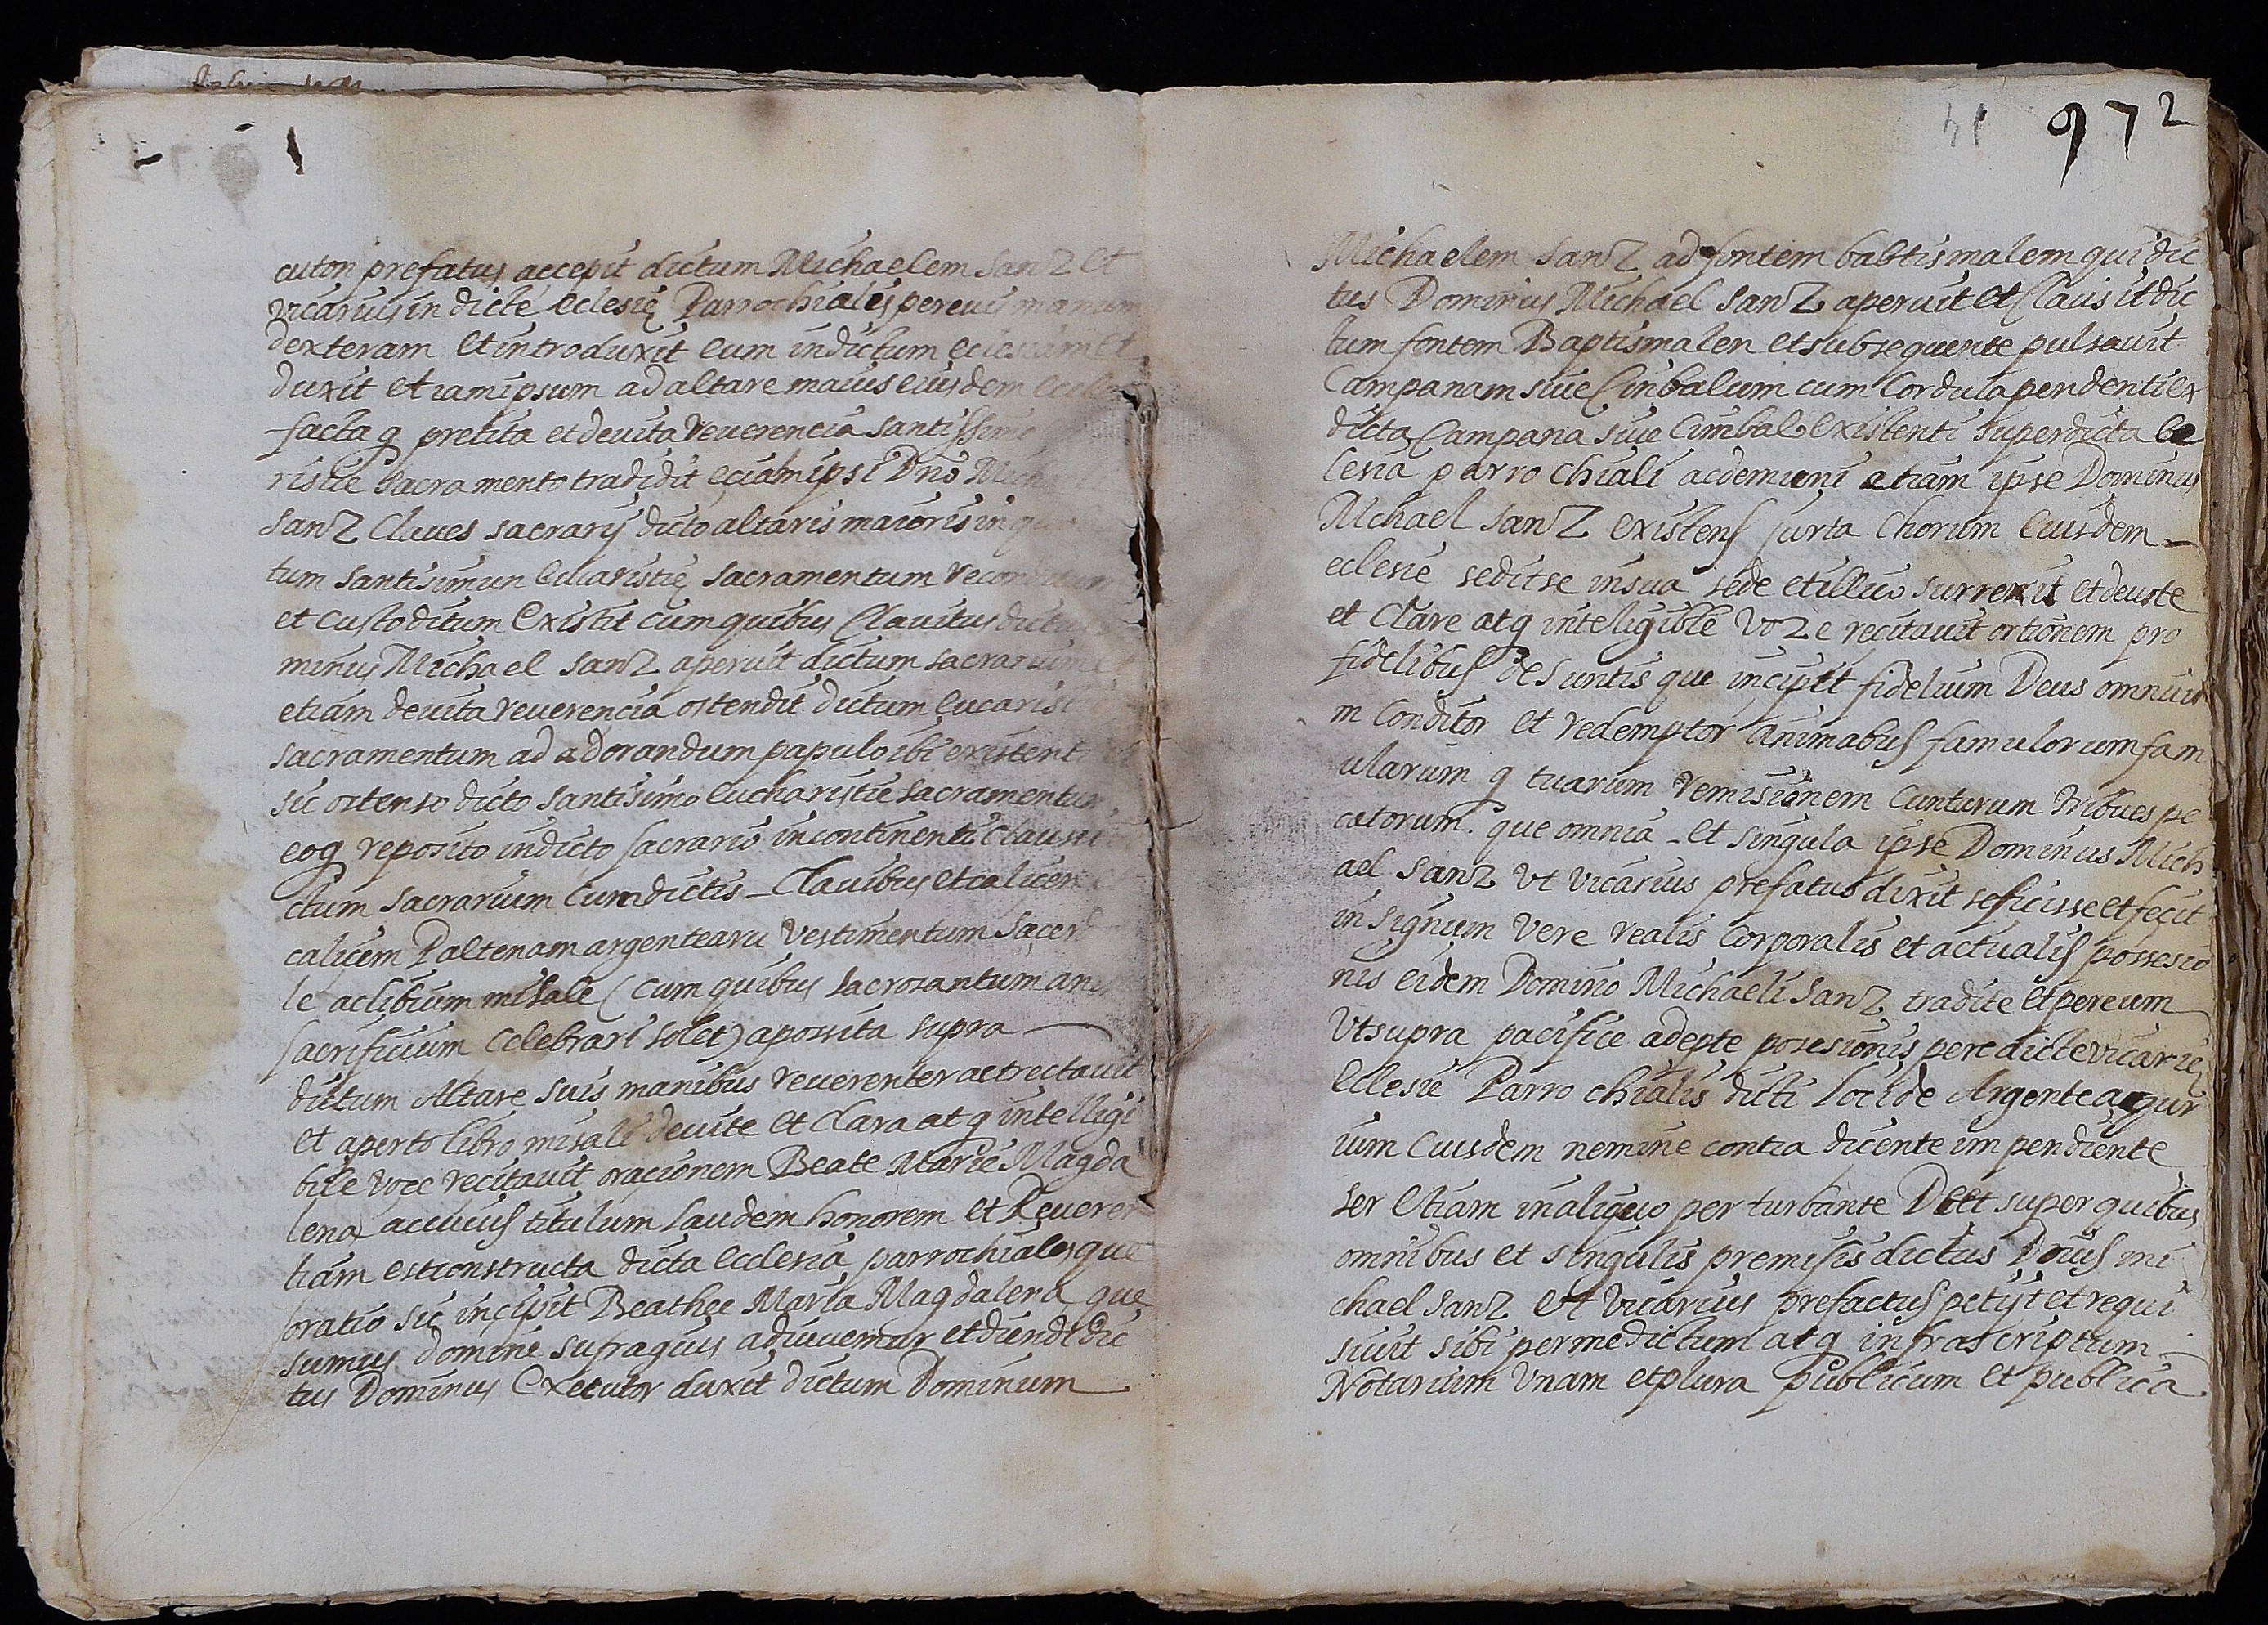 cuton prefatus accepit dictum Michaelem Sanz et
vicarius in dicte eclesię Parrochiales per eius manum
dexteram et introduxit eum in dictum eclesiam et
duxit etiam ipsum ad altare maius eiusdem
facta q pretita et devita reverencia santissimo
ristie sacramento tradidit eciam ipsi Dno
Sanz Claves sacrarij dicto altaris maioris in
tum santisimun eucaristię sacramentum reconditum
et custoditum existit cum quibus Clavitus
minus Michael Sanz aperuit dictum sacrarium
etiam devita reverencia ostendit dictum
sacramentum ad adorandum papulo ibi
sic ostenso dicto santisimo eucharistie sacramentum
eoq reposito in dicto sacrario incontinenti
ctum sacrarium cum dictis - Clavibus et calicem
calicem Daltenam argentearu vestimentum
le ac libium misale (cum quibus sacrosantum
sacrificium Celebrari solet) apossita supra
dictum Altare suis manibus reverenter actrectavit
et aperto libro misale devite et Clara atq intelligi
bile voce recitavit oracionem Beate Marie Magda
lena accuius titulum laudem honorem et Reveren
tiam est constructa dicta ecclesia parrochiales que
oratio sic incipit Beathee Maria Magdalena que
sumus domine sufragiis adiuvemar et diende dic
tus Dominus Executor duxit dictum Dominum
41 972
Michaelem Sanz ad fontem babtismalem qui dic
tus Dominus Michael Sanz aperuit et Clausit dic
tum fontem Baptismalen et subsequente pulsavit
Campanam sive Cinbalum cum Cordula pendenti ex
dicta Campana sive Cimbal existenti super dicta ec
lesia parrochiali ac demum etiam ipse Dominus
Michael Sanz existens jurta Chorum Eiusdem
eclesie sedit se in sua sede et illico surrexit et devote
et Clare atq inteligible voze recitavit ortionem pro
fidelibus desuntis que incipit fidelium Deus omniu
m Conditor et redemptor animabus famulorum fam
ularum q tuarum remisionem Cuntarum tribues pe
catorum. que omnia - et singula ipse Dominus Mich
ael Sanz Ut vicarius prefatus dixit se ficisse et fecit
in signum vere realis Corporalis et actualis possesio
nis eidem Domino Michaeli Sanz tradite et per eum
Ut supra pacifice adepte posesionis pere dicte vicarię
eclesie Parrochialis dicti loci de Argente
ium Cuisdem nemine contra dicente impendiente
ser etiam in aliquo perturbante Deet super quibus
omnibus et singulis premisis dictus Dnus mi
chael Sanz Ut vicarius prefactus petijt et requi
sivit sibi per me dictum atq infrascriptum
Notarium Unam et plura publicum et publica